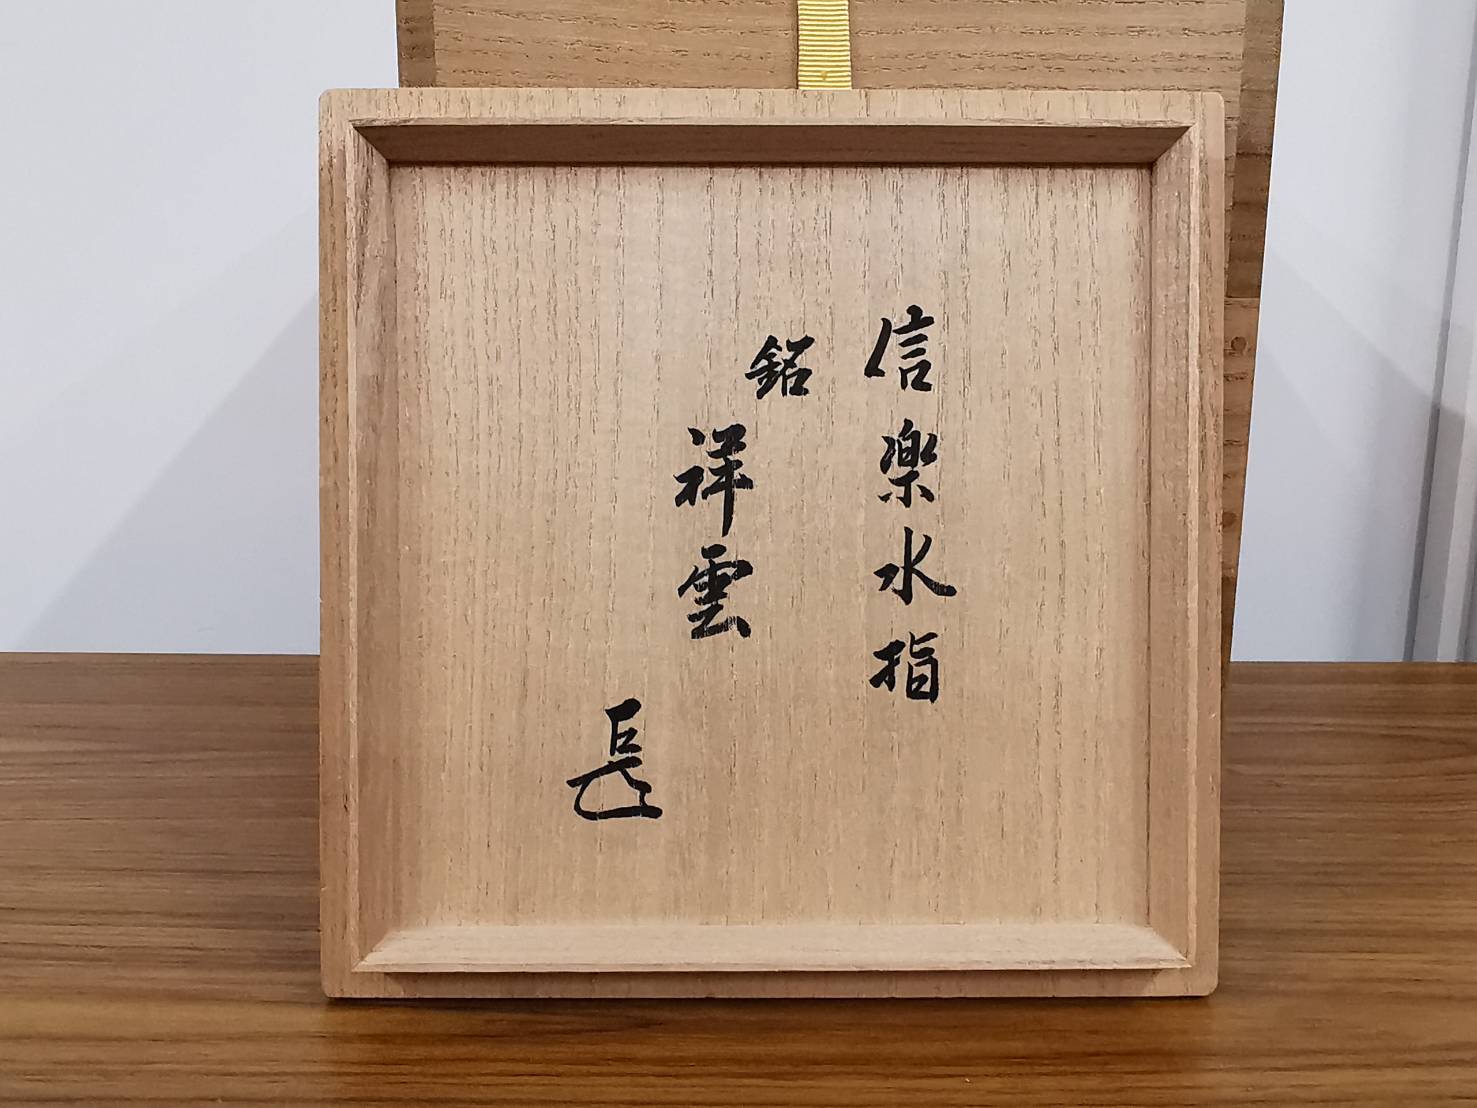 信楽水指
銘
祥雲